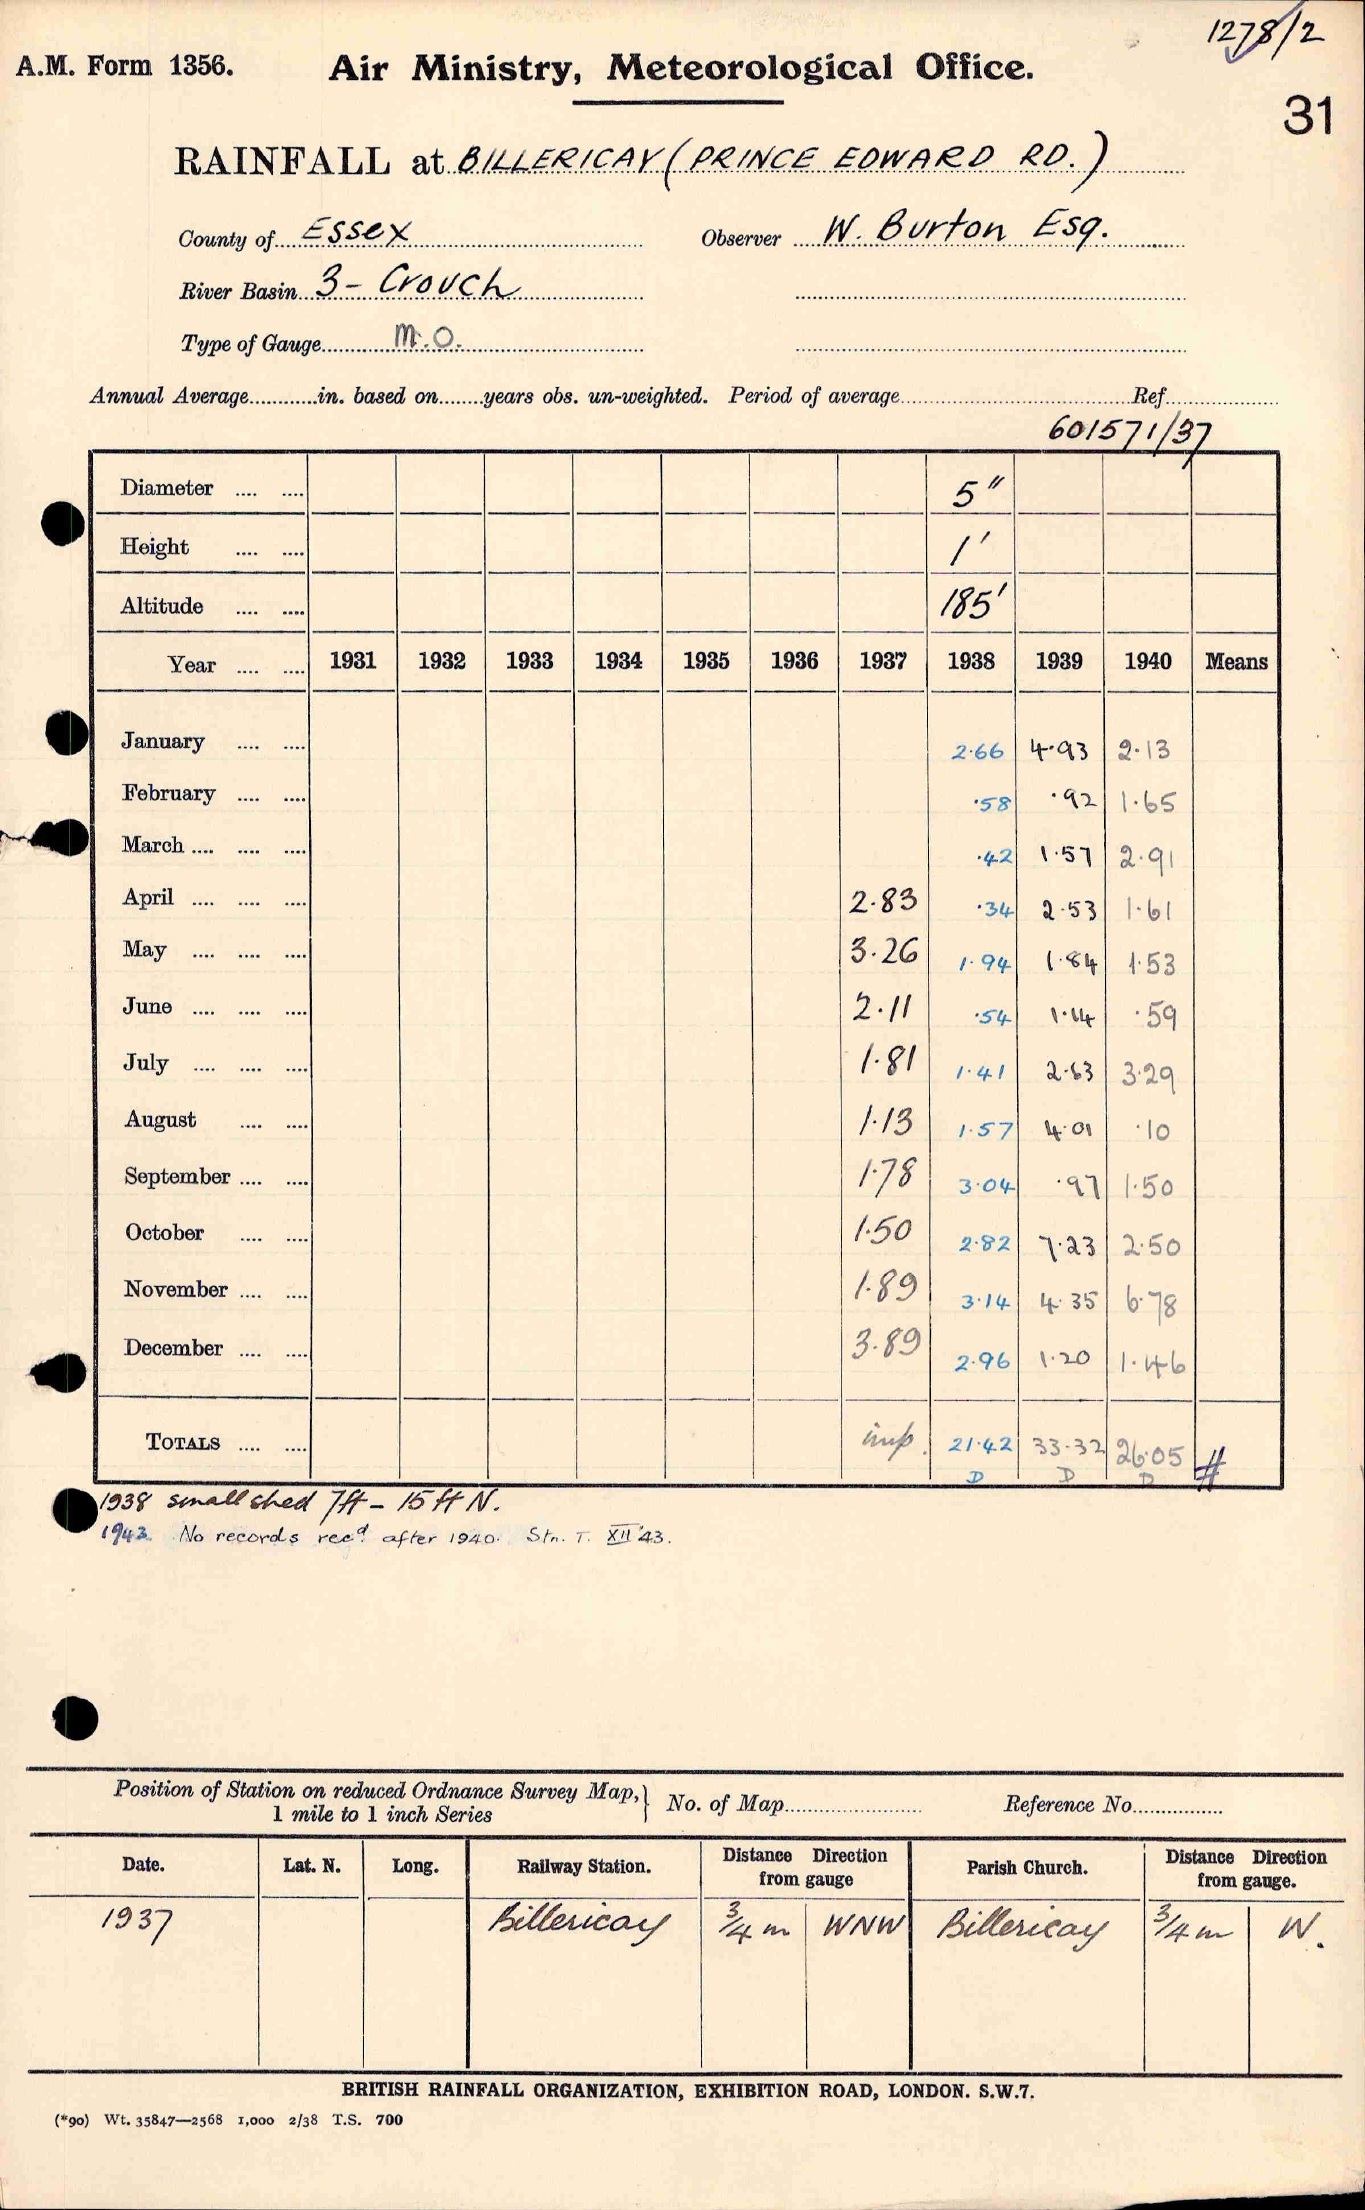 1278/2
A.M. Form 1356. Air Ministry, Meteorological Office.
31
RAINFALL at BILLERICAY (PRINCE EDWARD RD.)
County of Essex Observer W. Burton Esq.
River Basin 3 - Crouch
Type of Gauge M.O.
Annual Average............in. based on.......years obs. un-weighted. Period of average........................Ref................
601571/37
Diameter .... .... 5"
Height .... .... 1'
Altitude .... .... 185'
Year .... .... 1931 1932 1933 1934 1935 1936 1937 1938 1939 1940 Means
January .... .... 2.66 4.93 2.13
February .... .... .58 .92 1.65
March .... .... .... .42 1.57 2.91
April .... .... .... 2.83 .34 2.53 1.61
May .... .... .... 3.26 1.94 1.84 1.53
June .... .... .... 2.11 .54 1.14 .59
July .... .... .... 1.81 1.41 2.63 3.29
August .... .... 1.13 1.57 4.01 .10
September .... .... 1.78 3.04 .97 1.50
October .... .... 1.50 2.82 7.23 2.50
November .... .... 1.89 3.14 4.35 6.78
December .... .... 3.89 2.96 1.20 1.46
TOTALS .... .... imp. 21.42 33.32 26.05 #
D D D
1938 small shed 7ft - 15ft N.
1943 No records recd after 1940. Stn. T. XII '43.
Position of Station on reduced Ordnance Survey Map,} No. of Map........................ Reference No................
1 mile to 1 inch Series
Date. Lat. N. Long. Railway Station. Distance Direction from gauge Parish Church. Distance Direction from gauge.
1937 Billericay 3/4 m WNW Billericay 3/4 m W.
BRITISH RAINFALL ORGANIZATION, EXHIBITION ROAD, LONDON. S.W.7.
(*90) Wt. 35847—2568 1,000 2/38 T.S. 700